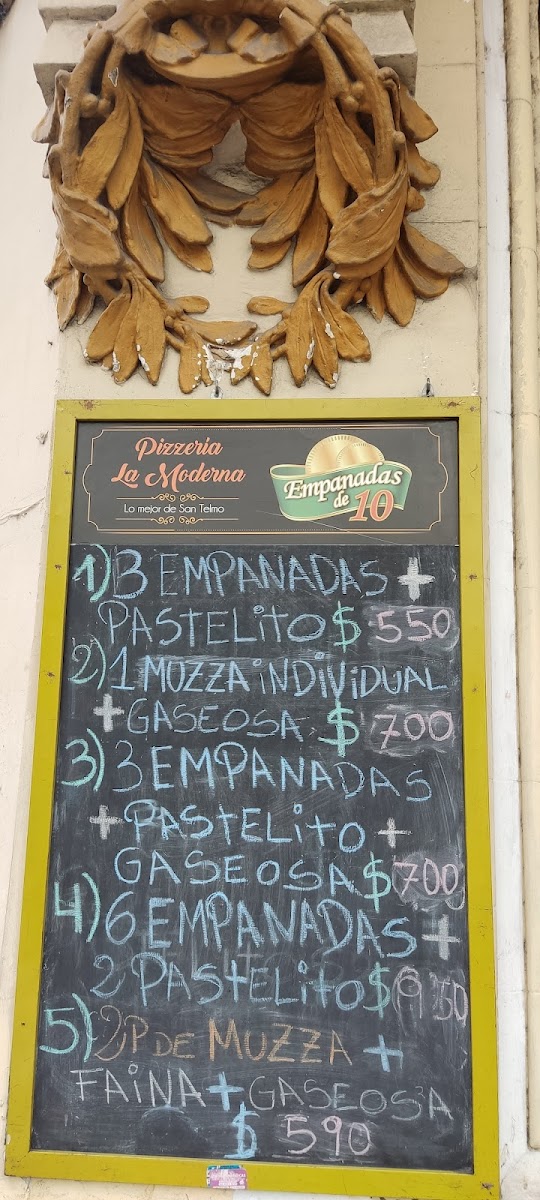 Pizzería
La Moderna
Lo mejor de San Telmo
Empanadas
de 10
1) 3 EMPANADAS +
PASTELITO $ 550
2) 1 MUZZA INDIVIDUAL
+ GASEOSA $ 700
3) 3 EMPANADAS
+ PASTELITO +
GASEOSA $ 700
4) 6 EMPANADAS +
2 PASTELITO $ 950
5) 2P DE MUZZA +
FAINA + GASEOSA
$ 590